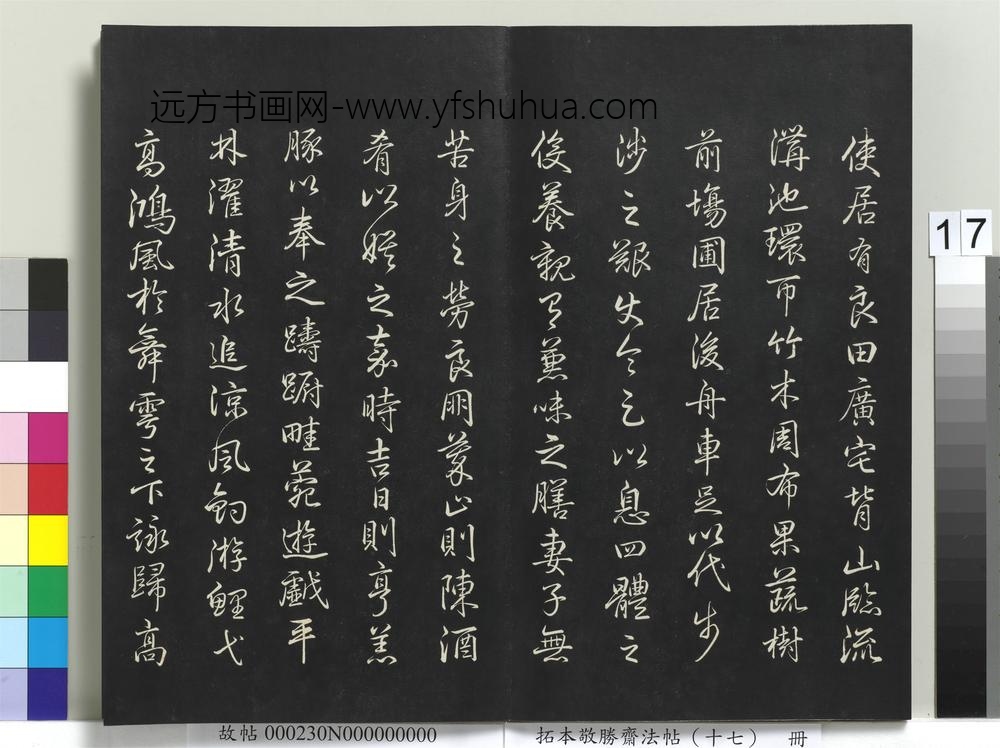 远方书画网-www.yfshuhua.com
使居有良田廣宅背山臨流
溝池環帀竹木周布果蔬樹
前塲圃居後舟車足以代步
涉之艱使令足以息四體之
役養親有兼味之膳妻子無
苦身之勞良朋萃止則陳酒
肴以娛之嘉時吉日則亨羔
豚以奉之躊躕畦苑遊戲平
林濯清水追涼風釣游鯉弋
高鴻風於舞雩之下詠歸高
17
故帖 000230N000000000
拓本敬勝齋法帖（十七） 冊